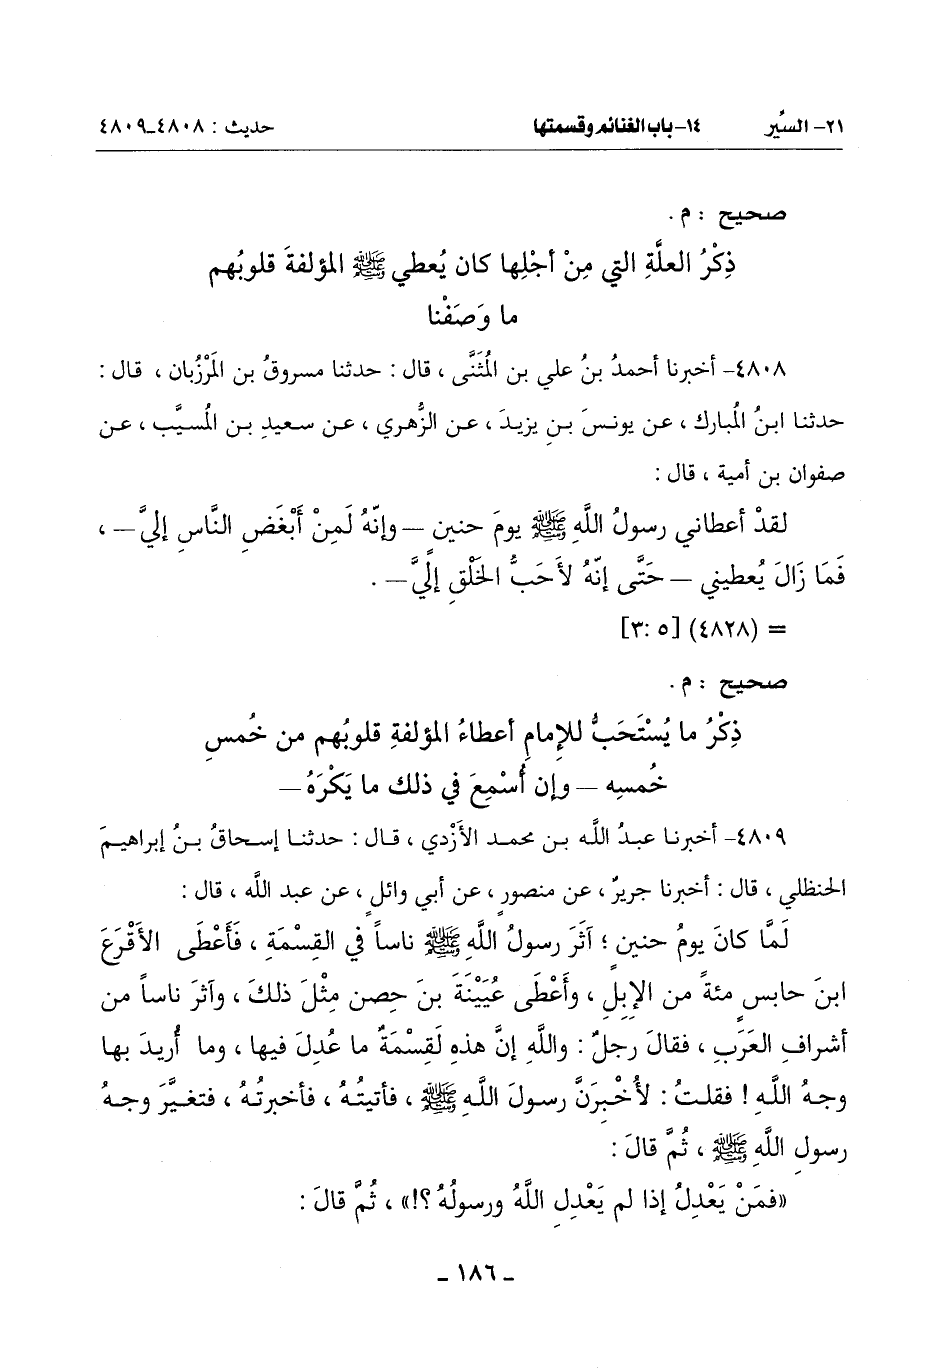 ٢١- السِّير ١٤- باب الغنائم وقسمتها حديث : ٤٨٠٨-٤٨٠٩
صحيح : م .
ذِكْرُ العلَّةِ التي مِنْ أجْلِها كان يُعطي ﷺ المؤلفةَ قلوبُهم
ما وَصَفْنا
٤٨٠٨- أخبرنا أحمدُ بنُ علي بن المُثَنَّى ، قال : حدثنا مسروقُ بن المَرْزُبان ، قال :
حدثنا ابنُ المُبارك ، عن يونسَ بنِ يزيدَ ، عن الزُّهري ، عن سعيدِ بن المُسيَّب ، عن
صفوان بن أمية ، قال :
لقدْ أعطاني رسولُ اللَّهِ ﷺ يومَ حنينٍ – وإنّهُ لَمِنْ أَبْغَضِ النَّاسِ إليَّ – ،
فَمَا زَالَ يُعطيني – حَتَّى إنّهُ لأَحَبُّ الخَلْقِ إليَّ – .
= (٤٨٢٨) [٣: ٥]
صحيح : م .
ذِكْرُ ما يُسْتَحَبُّ للإمامِ أعطاءُ المؤلفةِ قلوبُهم من خُمسِ
خُمسِه – وإن أُسْمِعَ في ذلك ما يَكْرَهُ –
٤٨٠٩- أخبرنا عبدُ اللَّه بن محمد الأَزْدي ، قال : حدثنا إسحاقُ بنُ إبراهيمَ
الحنظلي ، قال : أخبرنا جريرٌ ، عن منصورٍ ، عن أبي وائلٍ ، عن عبد اللَّه ، قال :
لَمَّا كانَ يومُ حنينٍ ؛ آثَرَ رسولُ اللَّهِ ﷺ ناساً في القِسْمَةِ ، فَأَعْطَى الأَقْرَعَ
ابنَ حابسٍ مئةً من الإبِلِ ، وأَعْطَى عُيَيْنَةَ بنَ حِصنٍ مِثْلَ ذلكَ ، وآثرَ ناساً من
أشرافِ العَرَبِ ، فقالَ رجلٌ : واللَّهِ إنَّ هذهِ لَقِسْمَةٌ ما عُدِلَ فيها ، وما أُريدَ بها
وجهُ اللَّهِ ! فقلتُ : لأُخْبِرَنَّ رسولَ اللَّهِ ﷺ ، فأتيتُهُ ، فأخبرتُهُ ، فتغيَّرَ وجهُ
رسولِ اللَّهِ ﷺ ، ثُمَّ قالَ :
«فمَنْ يَعْدِلُ إذا لم يَعْدِلِ اللَّهُ ورسولُهُ ؟!» ، ثُمَّ قالَ :
- ١٨٦ -